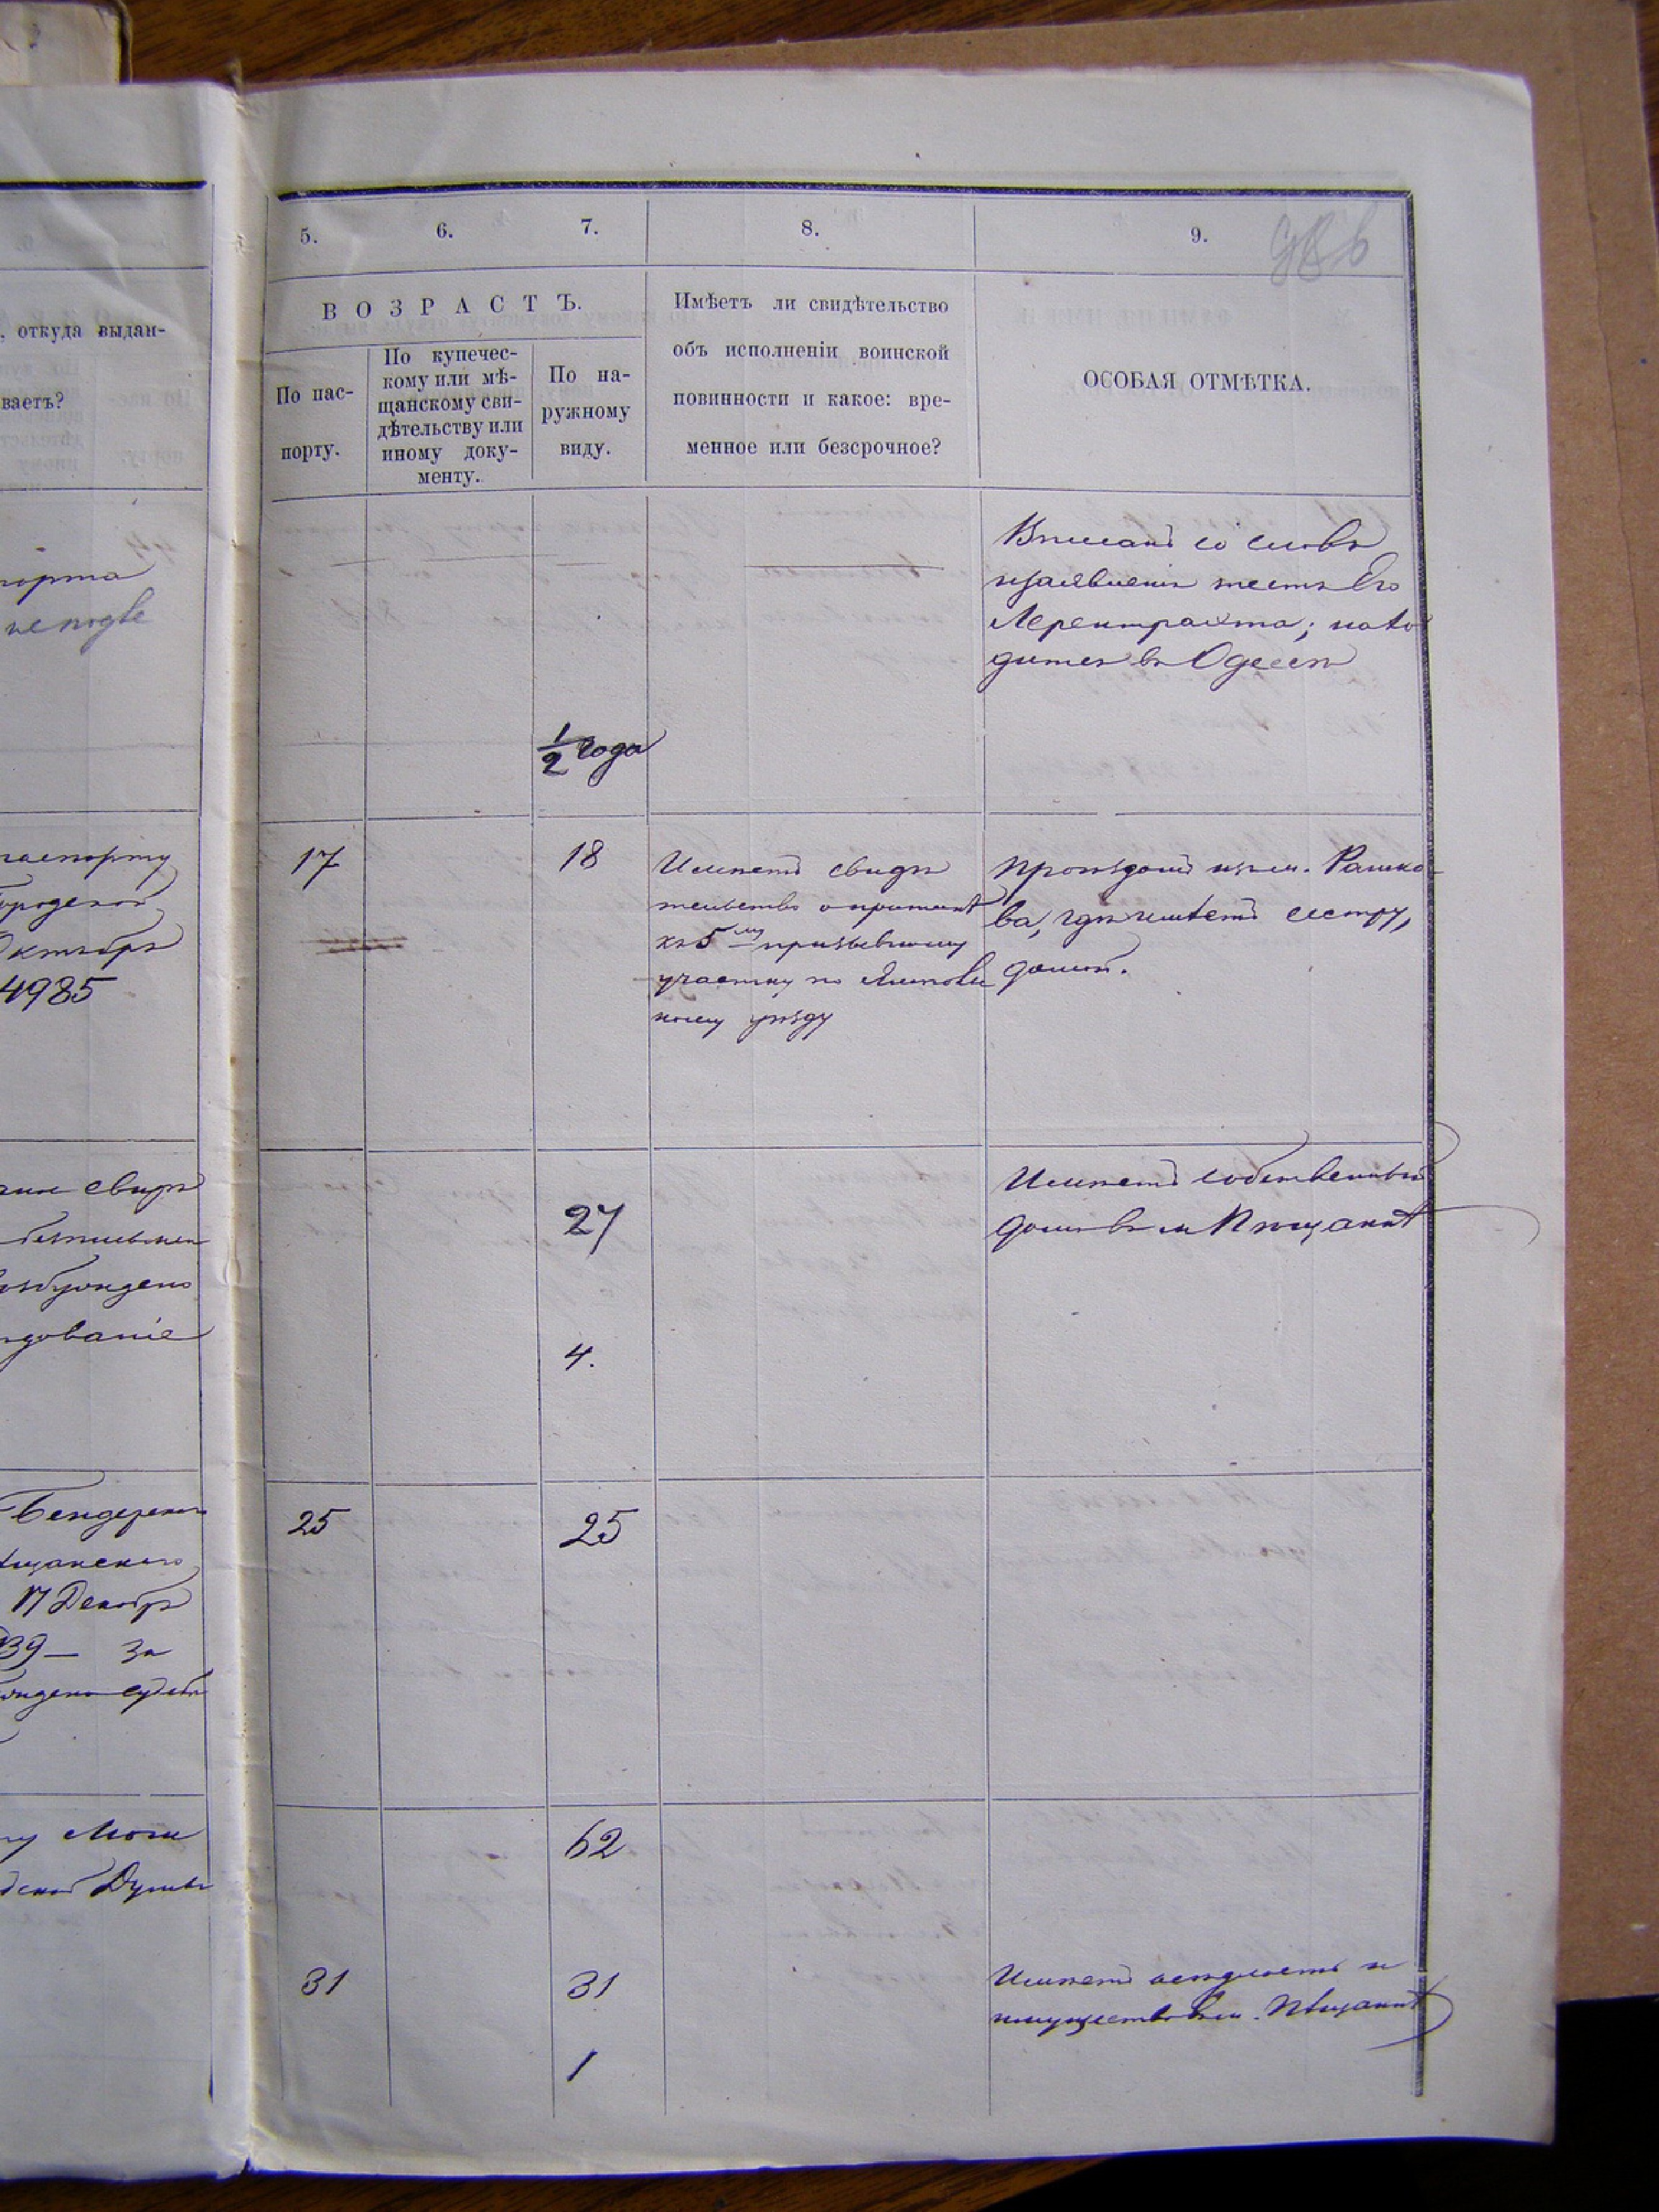 , откуда выдан-
ваетъ?
порта
неподве
паспорту
Городской
Октября
4985
свидѣ
возбуждено
дованіе
Бендерскаго
ѣщанскаго
17 Декабр
39 — За
Думы
5. 6. 7. 8. 9.
ВОЗРАСТЪ.
По пас-
порту.
По купечес-
кому или мѣ-
щанскому сви-
дѣтельству или
иному доку-
менту.
По на-
ружному
виду.
Имѣетъ ли свидѣтельство
объ исполненіи воинской
повинности и какое: вре-
менное или безсрочное?
ОСОБАЯ ОТМѢТКА.
Вписанъ со словъ
заявленія тестя Его
нахо
дится въ Одессѣ
1/2 года
17
18
Имѣетъ свидѣ
тельство о припискѣ
къ 5му призывному
участку по
скому уѣзду
Проѣздомъ изъ м. Рашко-
ва, гдѣ имѣетъ сестру,
домой.
27
Имѣетъ собственный
домъ въ м Пѣщанкѣ
4.
25
25
62
31
31
Имѣетъ осѣдлость и
имущество въ м. Пѣщанкѣ
1